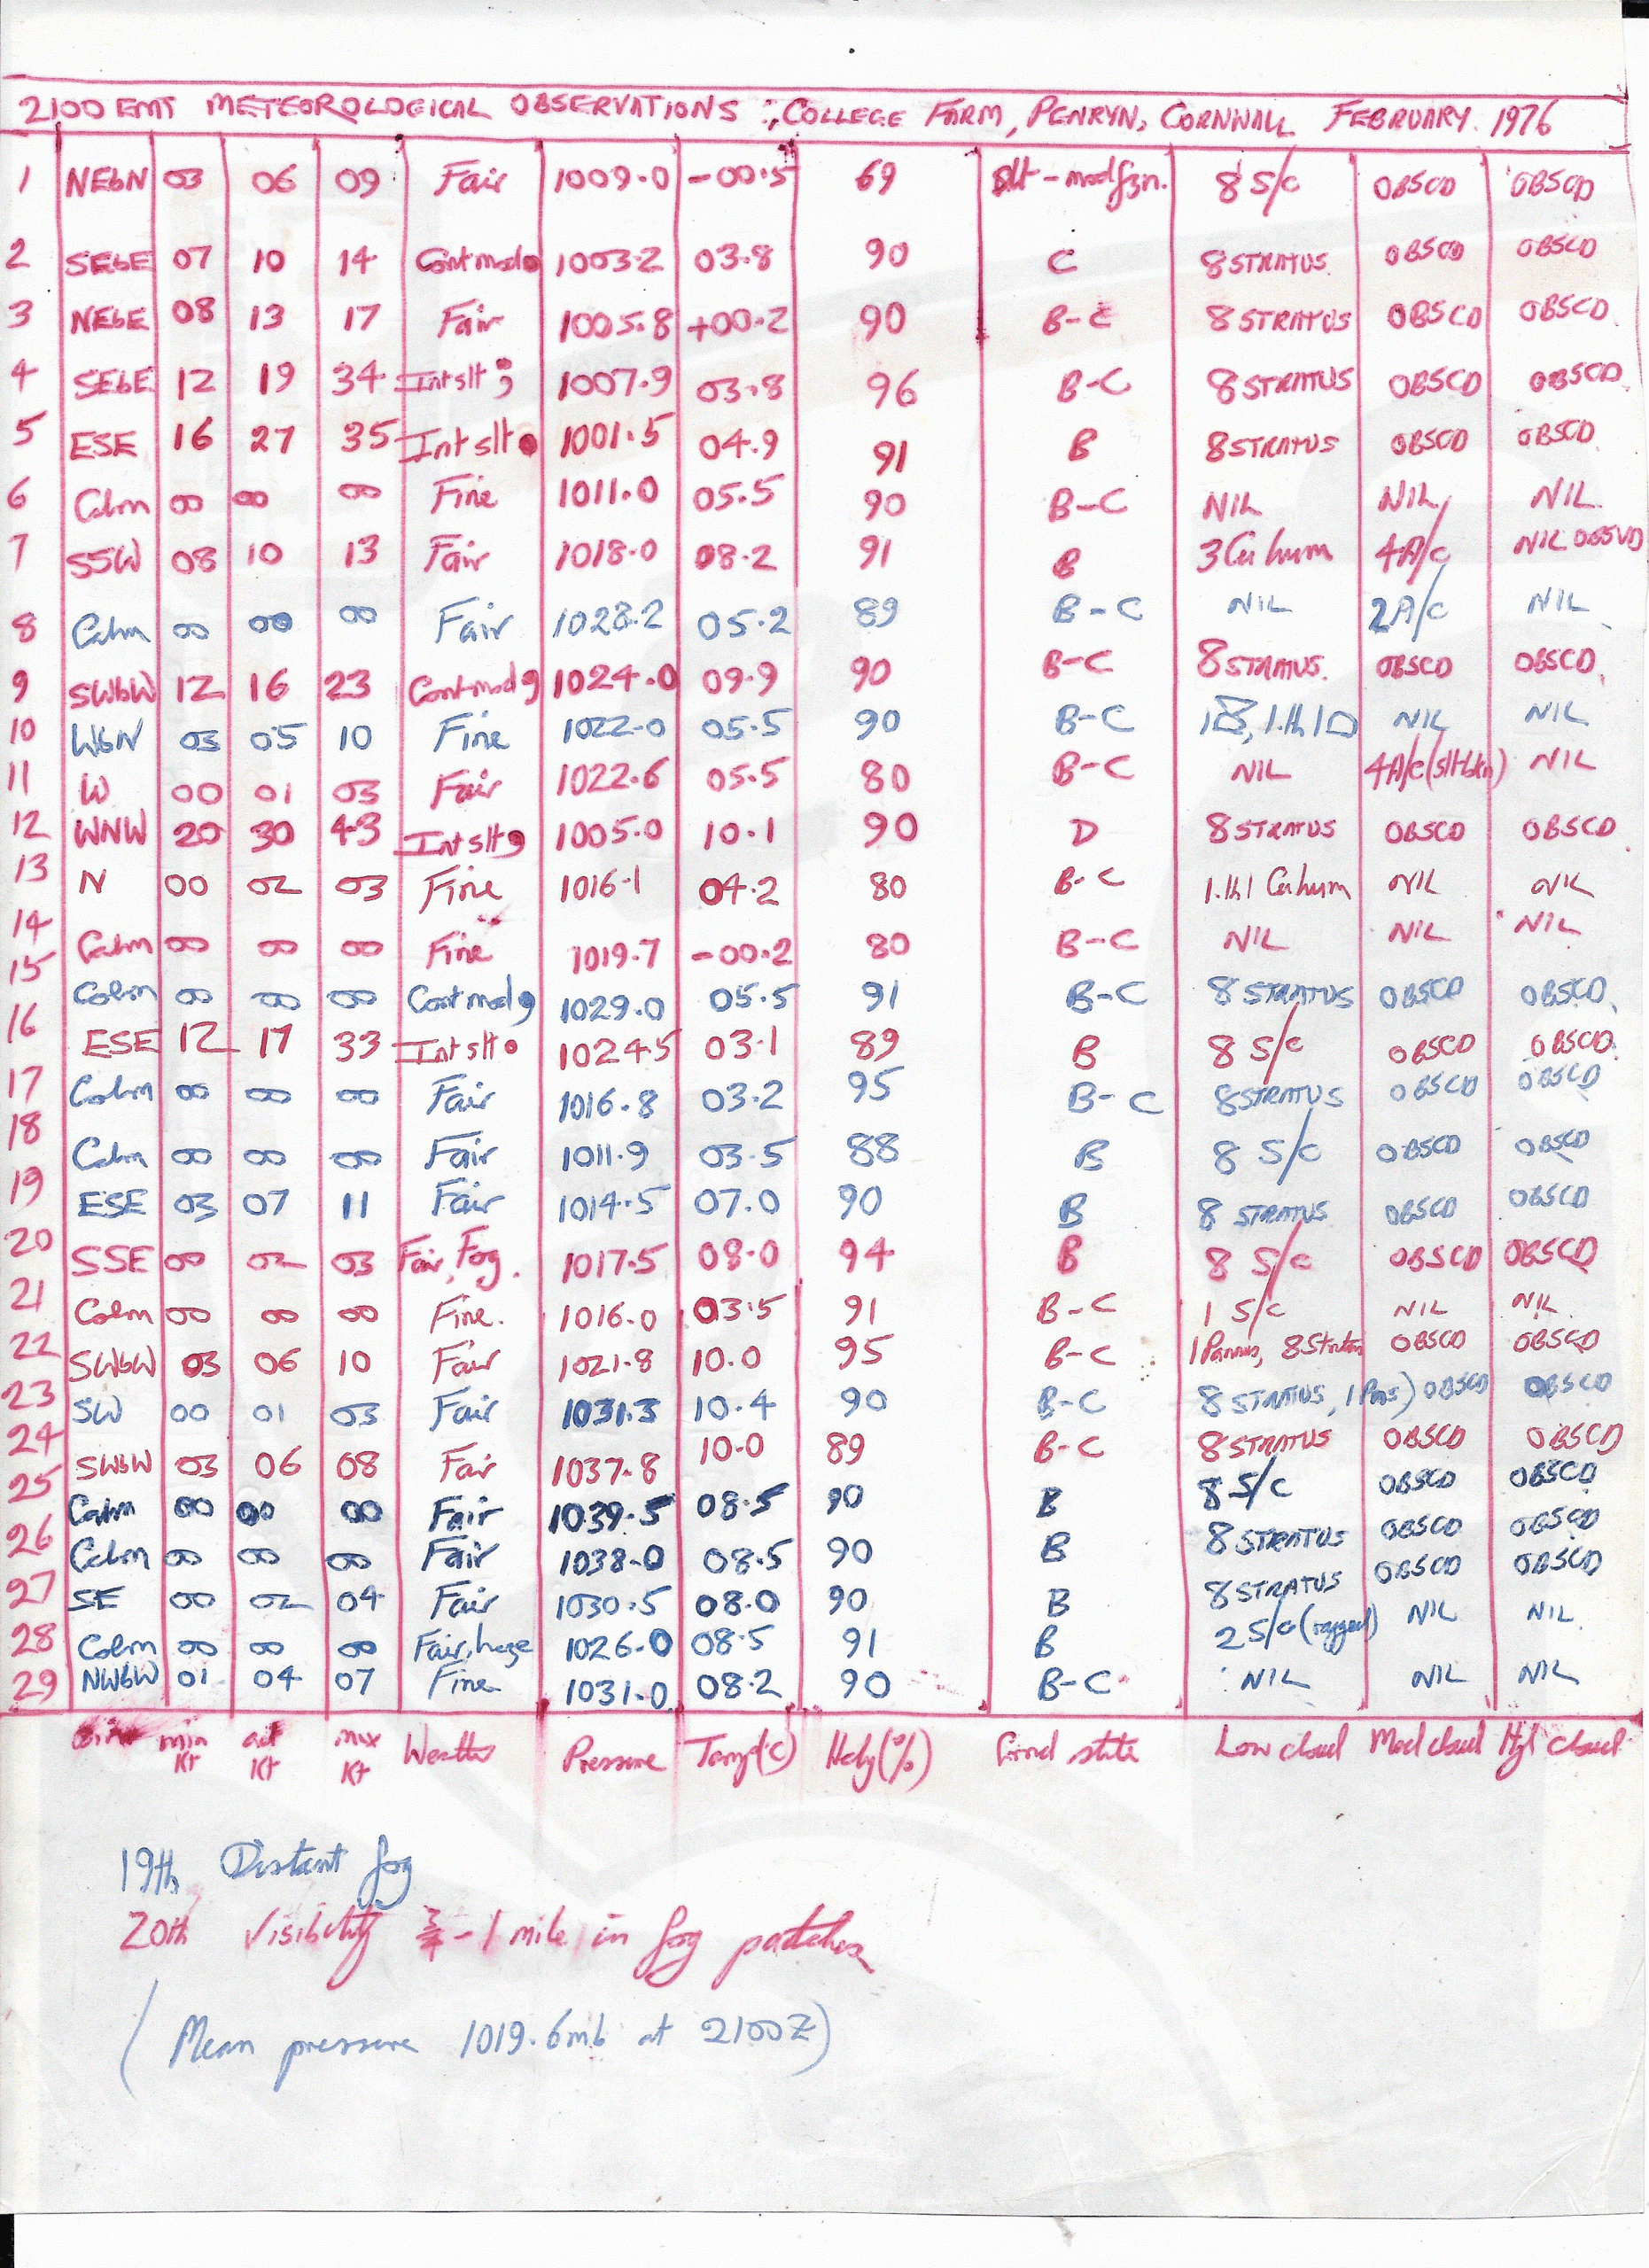 2100 GMT METEOROLOGICAL OBSERVATIONS :, COLLEGE FARM, PENRYN, CORNWALL FEBRUARY. 1976
1 NEbN 03 06 09 Fair 1009.0 -00.5 69 slt - mod fzn. 8 S/c OBSCD OBSCD
2 SEbE 07 10 14 Cont mod 1003.2 03.8 90 C 8 STRATUS. OBSCD OBSCD
3 NEbE 08 13 17 Fair 1005.8 +00.2 90 B-C 8 STRATUS OBSCD OBSCD
4 SEbE 12 19 34 Int slt ; 1007.9 03.8 96 B-C 8 STRATUS OBSCD OBSCD
5 ESE 16 27 35 Int slt • 1001.5 04.9 91 B 8 STRATUS OBSCD OBSCD
6 Calm 00 00 00 Fine 1011.0 05.5 90 B-C NIL NIL NIL
7 SSW 08 10 13 Fair 1018.0 08.2 91 B 3 Cu hum 4 A/c NIL OBSVD
8 Calm 00 00 00 Fair 1028.2 05.2 89 B-C NIL 2 A/c NIL
9 SWbW 12 16 23 Cont mod 9 1024.0 09.9 90 B-C 8 STRATUS. OBSCD OBSCD
10 WbN 03 05 10 Fine 1022.0 05.5 90 B-C NIL NIL
11 W 00 01 03 Fair 1022.6 05.5 80 B-C NIL 4 A/c (slt bkn) NIL
12 WNW 20 30 43 Int slt 9 1005.0 10.1 90 D 8 STRATUS OBSCD OBSCD
13 N 00 02 03 Fine 1016.1 04.2 80 B-C 1.th 1 Cu hum NIL NIL
14 Calm 00 00 00 Fine 1019.7 -00.2 80 B-C NIL NIL NIL
15 Calm 00 00 00 Cont mod 9 1029.0 05.5 91 B-C 8 STRATUS OBSCD OBSCD
16 ESE 12 17 33 Int slt • 1024.5 03.1 89 B 8 S/c OBSCD OBSCD
17 Calm 00 00 00 Fair 1016.8 03.2 95 B-C 8 STRATUS OBSCD OBSCD
18 Calm 00 00 00 Fair 1011.9 03.5 88 B 8 S/c OBSCD OBSCD
19 ESE 03 07 11 Fair 1014.5 07.0 90 B 8 STRATUS OBSCD OBSCD
20 SSE 00 02 03 Fair, Fog. 1017.5 08.0 94 B 8 S/c OBSCD OBSCD
21 Calm 00 00 00 Fine. 1016.0 03.5 91 B-C 1 S/c NIL NIL
22 SWbW 03 06 10 Fair 1021.8 10.0 95 B-C 1 Pannus, 8 Stratus OBSCD OBSCD
23 SW 00 01 03 Fair 1031.3 10.4 90 B-C 8 STRATUS, 1 Pns) OBSCD OBSCD
24 SWbW 03 06 08 Fair 1037.8 10.0 89 B-C 8 STRATUS OBSCD OBSCD
25 Calm 00 00 00 Fair 1039.5 08.5 90 B 8 S/c OBSCD OBSCD
26 Calm 00 00 00 Fair 1038.0 08.5 90 B 8 STRATUS OBSCD OBSCD
27 SE 00 02 04 Fair 1030.5 08.0 90 B 8 STRATUS OBSCD OBSCD
28 Calm 00 00 00 Fair, haze 1026.0 08.5 91 B 2 S/c (ragged) NIL NIL
29 NWbW 01 04 07 Fine 1031.0 08.2 90 B-C NIL NIL NIL
min Kt act Kt max Kt Weather Pressure Temp(°C) Hdy(%) Grnd state Low cloud Med cloud High cloud
19th Distant fog
20th Visibility ¾ - 1 mile in fog patches
(Mean pressure 1019.6mb at 2100Z)